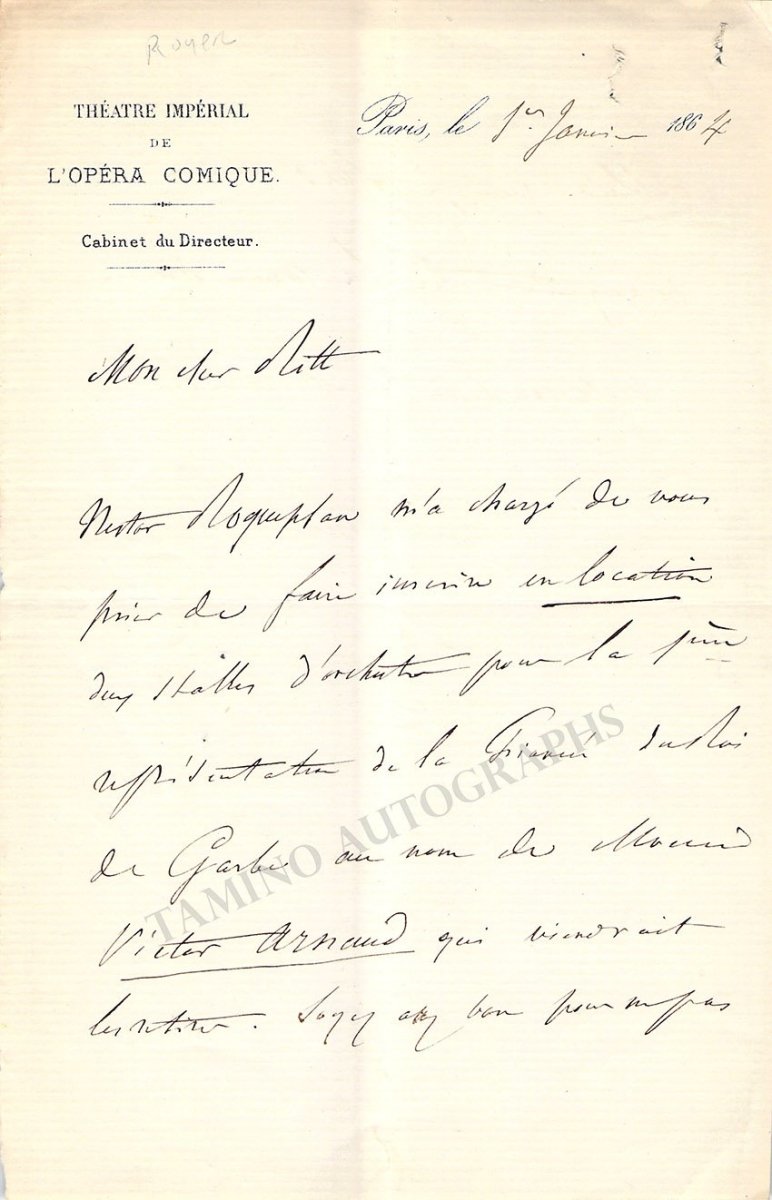 Royer
THÉATRE IMPÉRIAL
DE
L'OPÉRA COMIQUE.
Cabinet du Directeur.
Paris, le 1er Janvier 1864
Mon cher Ritt
Nestor Roqueplan m'a chargé de vous
prier de faire inscrire en location
deux stalles d'orchestre pour la 1ère
représentation de la Fiancée du Roi
de Garbe au nom de
Victor Arnaud qui viendrait
les retirer. Soyez assez bon pour ne pas
TAMINO AUTOGRAPHS